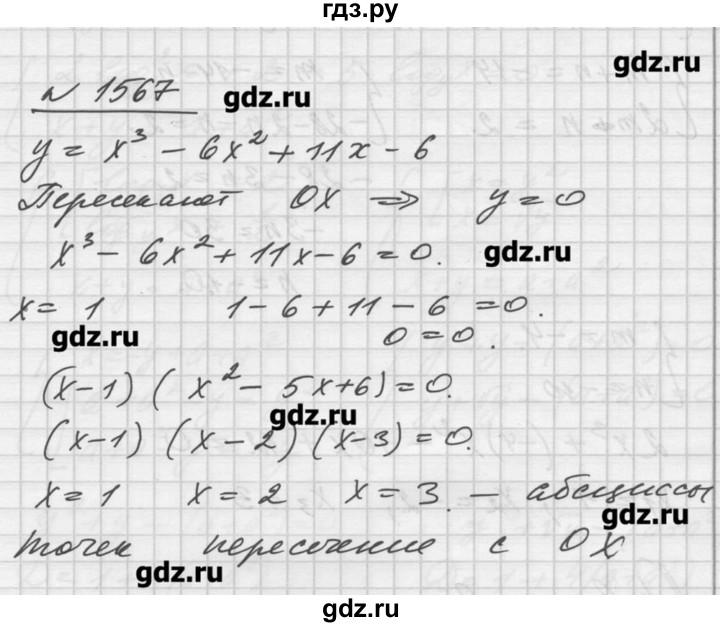 гдз.ру
gdz.ru
№ 1567
gdz.ru
y = x³ - 6x² + 11x - 6
Пересекают OX ⇒ y = 0
x³ - 6x² + 11x - 6 = 0.
gdz.ru
x = 1 1 - 6 + 11 - 6 = 0.
gdz.ru
0 = 0.
(x-1) (x² - 5x+6) = 0.
gdz.ru
(x-1) (x-2) (x-3) = 0.
x = 1 x = 2 x = 3 - абсциссы
gdz.ru
точек пересечение с OX
gdz.ru
gdz.ru